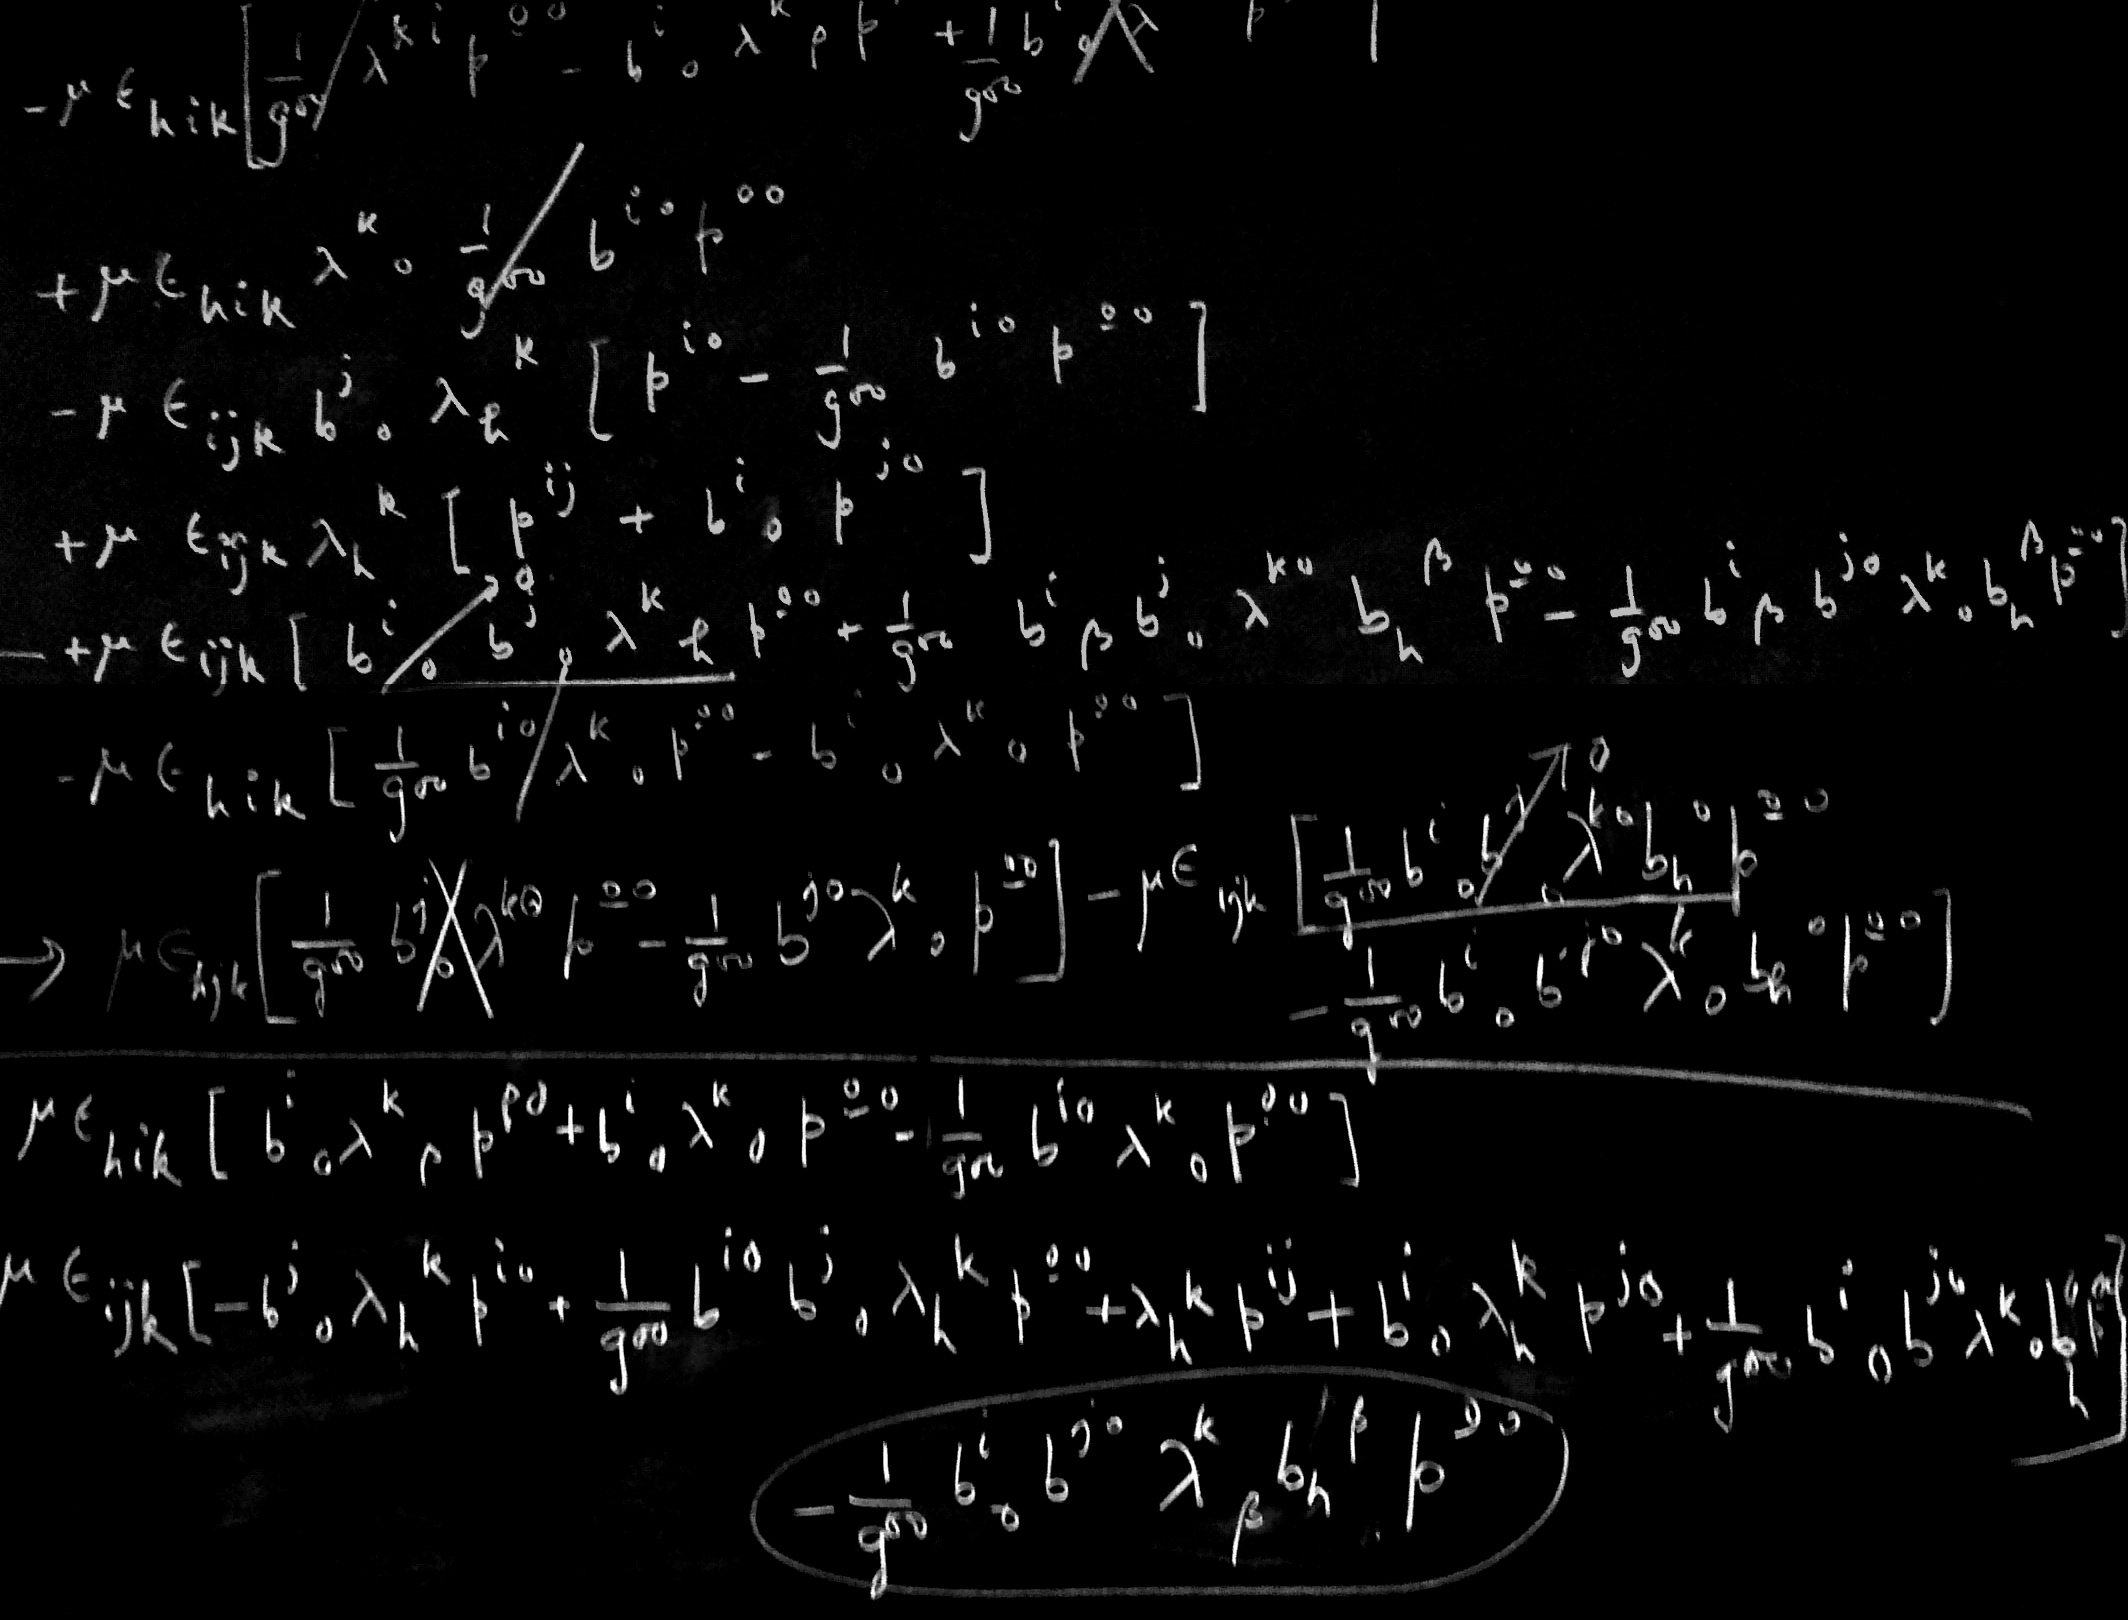 -μ ε_{hik} [ \frac{1}{g^{00}} λ^{ki} p^{00} - b^i_0 λ^k_ρ p + \frac{1}{g^{00}} b ]
+μ ε_{hik} λ^k_0 \frac{1}{g^{00}} b^{i0} p^{00}
-μ ε_{ijk} b^j_0 λ_h^k [ p^{i0} - \frac{1}{g^{00}} b^{i0} p^{00} ]
+μ ε_{ijk} λ_h^k [ p^{ij} + b^i_0 p^{j0} ]
- +μ ε_{ijk} [ b^i_0 b^j_0 λ^k_h p^{00} + \frac{1}{g^{00}} b^i_β b^j_0 λ^{k0} b_h^β p^{00} - \frac{1}{g^{00}} b^i_β b^{j0} λ^k_0 b_h^β p^{00} ]
-μ ε_{hik} [ \frac{1}{g^{00}} b^{i0} λ^k_0 p^{00} - b^i_0 λ^k_0 p^{00} ]
→ μ ε_{hjk} [ \frac{1}{g^{00}} b^j_0 λ^{k0} p^{00} - \frac{1}{g^{00}} b^{j0} λ^k_0 p^{00} ] - μ ε_{ijk} [ \frac{1}{g^{00}} b^i_0 b^j_0 λ^{k0} b_h^0 p^{00} → 0
- \frac{1}{g^{00}} b^i_0 b^{j0} λ^k_0 b_h^0 p^{00} ]
μ ε_{hik} [ b^i_0 λ^k_ρ p^{ρ0} + b^i_0 λ^k_0 p^{00} - \frac{1}{g^{00}} b^{i0} λ^k_0 p^{00} ]
μ ε_{ijk} [ -b^j_0 λ_h^k p^{i0} + \frac{1}{g^{00}} b^{i0} b^j_0 λ_h^k p^{00} + λ_h^k p^{ij} + b^i_0 λ_h^k p^{j0} + \frac{1}{g^{00}} b^i_0 b^{j0} λ^k_0 b_h^0 p^{00} ]
- \frac{1}{g^{00}} b^i_0 b^{j0} λ^k_β b_h^β p^{00}